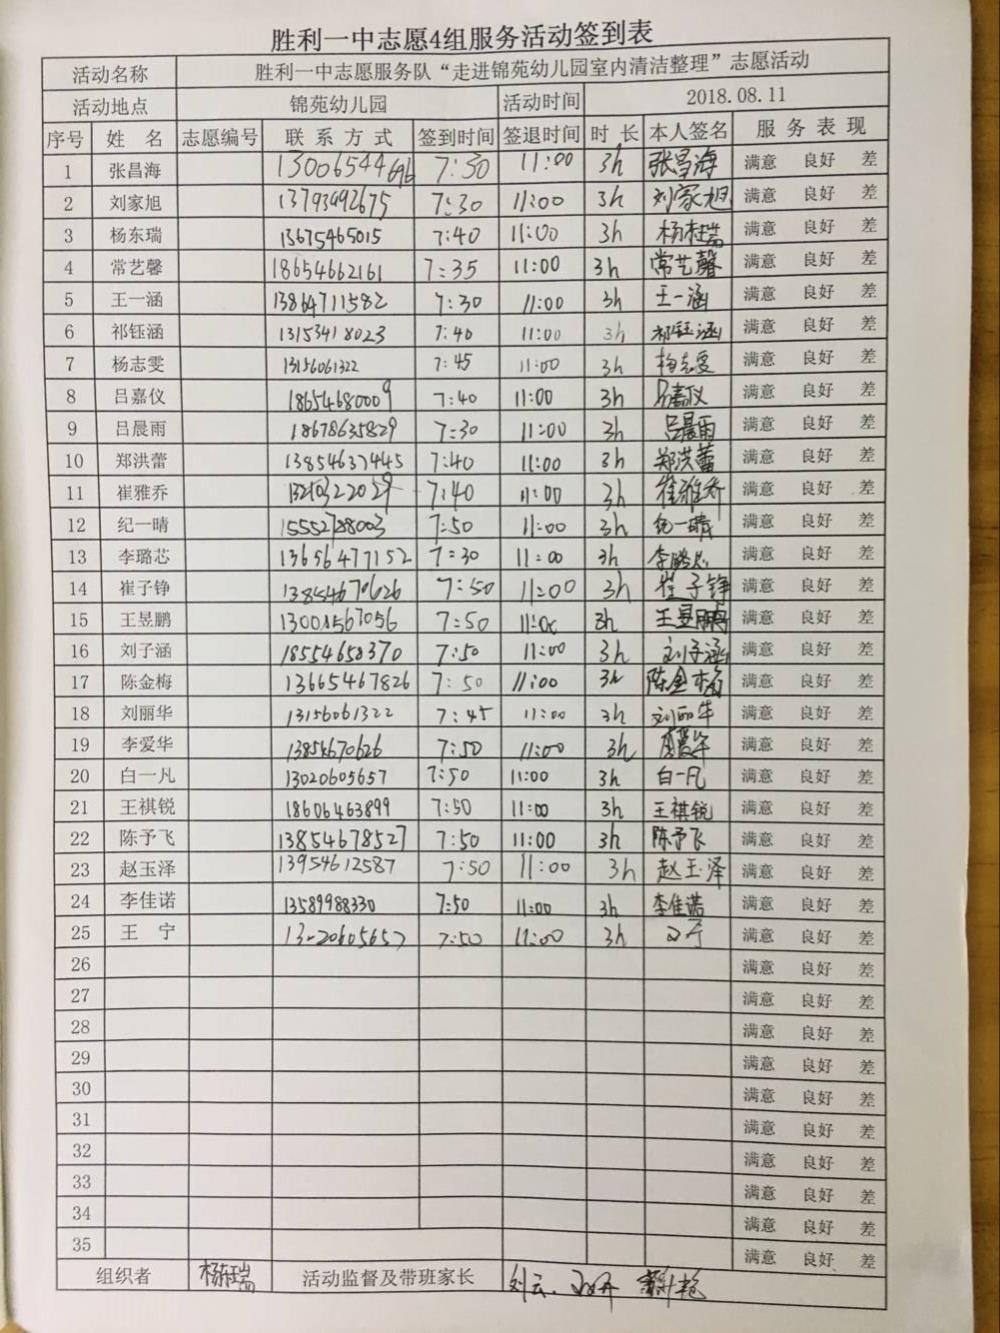 胜利一中志愿4组服务活动签到表
活动名称 胜利一中志愿服务队“走进锦苑幼儿园室内清洁整理”志愿活动
活动地点 锦苑幼儿园 活动时间 2018.08.11
序号 姓 名 志愿编号 联系方式 签到时间 签退时间 时长 本人签名 服务表现
1 张昌海 13006544696 7:30 11:00 3h 张昌海 满意 良好 差
2 刘家旭 13793992675 7:30 11:00 3h 刘家旭 满意 良好 差
3 杨东瑞 13675465015 7:40 11:00 3h 杨东瑞 满意 良好 差
4 常艺馨 18654662161 7:35 11:00 3h 常艺馨 满意 良好 差
5 王一涵 13864711582 7:30 11:00 3h 王一涵 满意 良好 差
6 祁钰涵 13153418023 7:40 11:00 3h 祁钰涵 满意 良好 差
7 杨志雯 13156061322 7:45 11:00 3h 杨志雯 满意 良好 差
8 吕嘉仪 18654680009 7:40 11:00 3h 吕嘉仪 满意 良好 差
9 吕晨雨 18678635829 7:30 11:00 3h 吕晨雨 满意 良好 差
10 郑洪蕾 13854637445 7:40 11:00 3h 郑洪蕾 满意 良好 差
11 崔雅乔 7:40 11:00 3h 崔雅乔 满意 良好 差
12 纪一晴 15552788003 7:50 11:00 3h 纪一晴 满意 良好 差
13 李璐芯 13656477152 7:30 11:00 3h 李璐芯 满意 良好 差
14 崔子铮 13854670626 7:50 11:00 3h 崔子铮 满意 良好 差
15 王昱鹏 7:50 11:00 3h 王昱鹏 满意 良好 差
16 刘子涵 18554658370 7:50 11:00 3h 刘子涵 满意 良好 差
17 陈金梅 13665467826 7:50 11:00 3h 陈金梅 满意 良好 差
18 刘丽华 13156061322 7:45 11:00 3h 刘丽华 满意 良好 差
19 李爱华 13854670626 7:50 11:00 3h 李爱华 满意 良好 差
20 白一凡 13020605657 7:50 11:00 3h 白一凡 满意 良好 差
21 王祺锐 18606463899 7:50 11:00 3h 王祺锐 满意 良好 差
22 陈予飞 13854678527 7:50 11:00 3h 陈予飞 满意 良好 差
23 赵玉泽 13954612587 7:50 11:00 3h 赵玉泽 满意 良好 差
24 李佳诺 13589988330 7:50 11:00 3h 李佳诺 满意 良好 差
25 王 宁 13020605657 7:50 11:00 3h 王宁 满意 良好 差
26 满意 良好 差
27 满意 良好 差
28 满意 良好 差
29 满意 良好 差
30 满意 良好 差
31 满意 良好 差
32 满意 良好 差
33 满意 良好 差
34 满意 良好 差
35 满意 良好 差
组织者 杨东瑞 活动监督及带班家长 刘云、